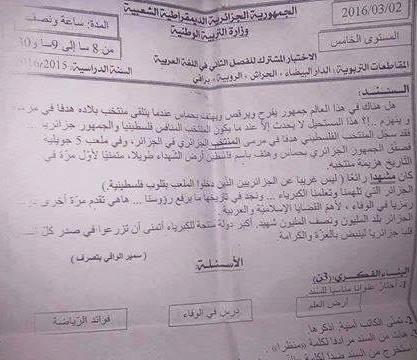 الجمهورية الجزائرية الديمقراطية الشعبية
2016/03/02
وزارة التربية الوطنية
المدة: ساعة ونصف
من 8 سا إلى 9سا و30
المستوى الخامس
الاختبار المشترك للفصل الثاني في اللغة العربية
المقاطعات التربوية: الدار البيضاء، الحراش، الرويبة، براقي
السنة الدراسية: 2016/2015
السند:
هل هناك في هذا العالم جمهور يفرح ويرقص ويهتف بحماس عندما يتلقى منتخب بلاده هدفا في مرمى
وينهزم ..؟! هذا المستحيل لا يحدث إلا عندما يكون المنتخب المنافس فلسطينيا والجمهور جزائريا
فقد سجل المنتخب الفلسطيني هدفا في مرمى المنتخب الجزائري في الجزائر، وفي ملعب 5 جويلية
صفق الجمهور الجزائري بحماس وهتف باسم فلسطين أرض الشهداء طويلا، متمنيا لأول مرة في
التاريخ هزيمة منتخبه.
كان مشهدا رائعا ( ليس غريبا عن الجزائريين الذين دخلوا الملعب بقلوب فلسطينية.)
الجزائر التي تلهمنا وتعلمنا الكبرياء ... ونجد في تاريخها ما يرفع رؤوسنا ... هاهي تقدم مرة أخرى درسا
رمزيا في الوفاء، لأهم القضايا الإسلامية والعربية.
الجزائر بلد المليون ونصف المليون شهيد، أكبر دولة منتجة للكبرياء أتمنى أن تزرعوا في صدر كل
قلب جزائريا لينبض بالعزة والكرامة.
سمير الوافي بتصرف
الأسئلة:
البناء الفكري: (3ن)
1- أختار عنوانا مناسبا للسند
أرض العلم
درس في الوفاء
فوائد الرياضة
2- تمنى الكاتب أمنية. أذكرها.
هات من السند مرادفا لكلمة «منظرا».
من السند